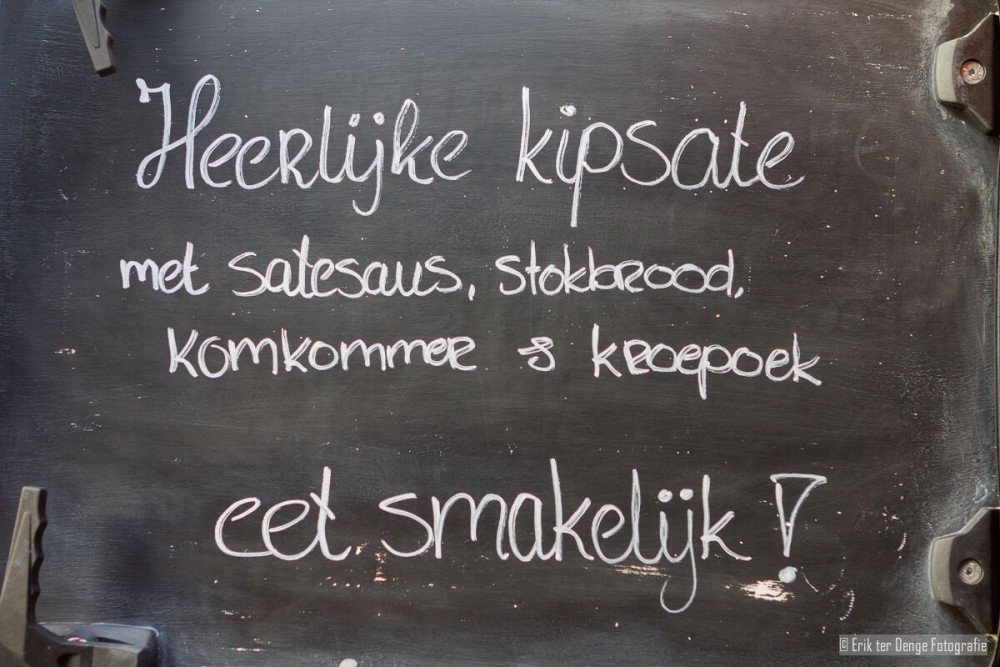 Heerlijke kipsate
met satesaus, stokbrood,
komkommer & kroepoek
eet smakelijk!
© Erik ter Denge Fotografie